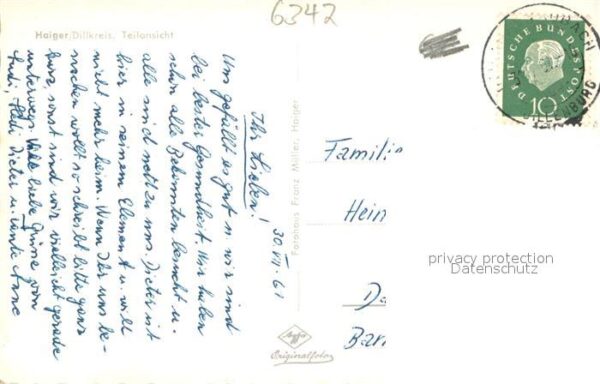 6342
Haiger/Dillkreis, Teilansicht
30.VII.61
Ihr Lieben!
Uns gefällt es gut u. wir sind
bei bester Gesundheit. Wir haben
schon alle Bekannten besucht u.
alle sind nett zu uns. Dieter ist
hier in seinem Element u. will
nicht mehr heim. Wenn Ihr uns be-
suchen wollt so schreibt bitte ganz
kurz, sonst sind wir vielleicht gerade
unterwegs. Viele liebe Grüße von
Dieter u. Tante
Fotohaus Franz Müller, Haiger
Agfa
Originalfoto
DEUTSCHE BUNDESPOST
10
DILLENBURG
Familie
Hein
Da
Barn
privacy protection
Datenschutz